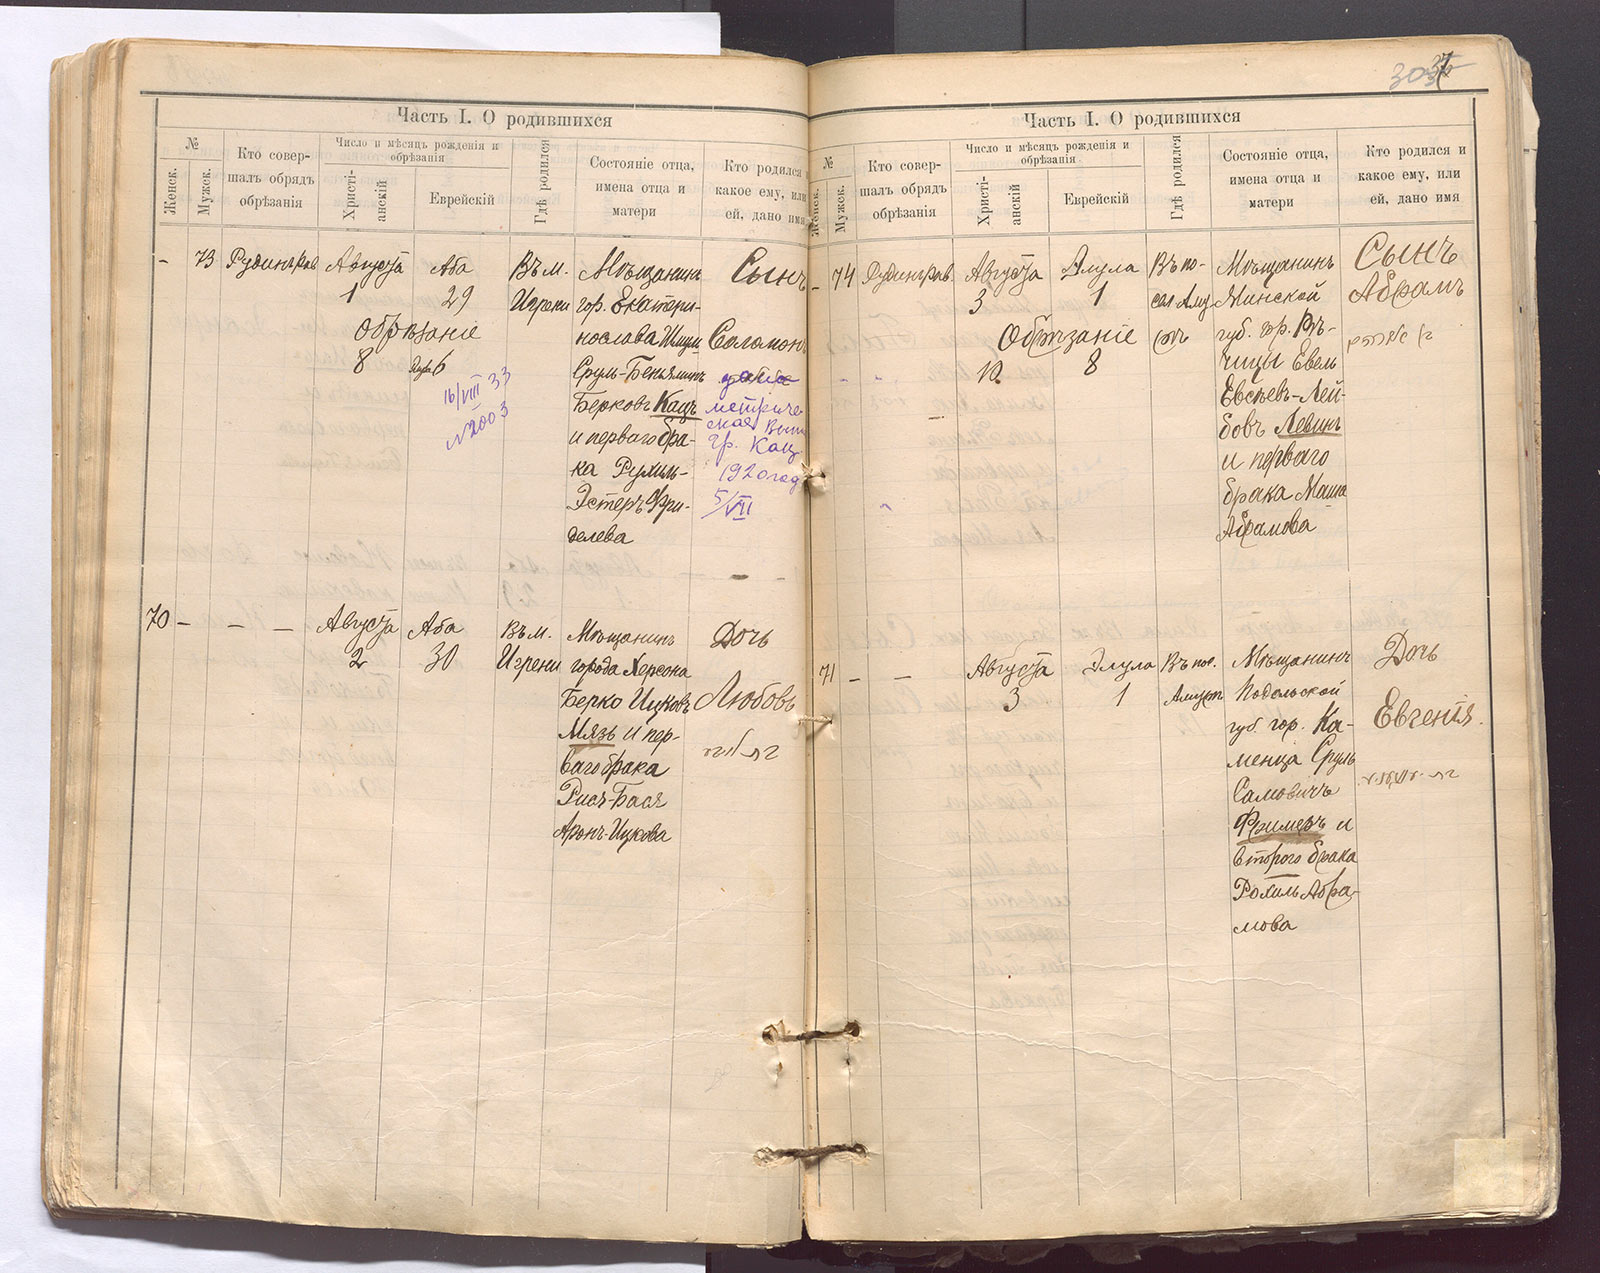 37
Часть I. О родившихся
№
Женск.
Мужск.
Кто совер-
шалъ обрядъ
обрѣзанія
Число и мѣсяцъ рожденія и
обрѣзанія
Христі-
анскій
Еврейскій
Гдѣ родился
Состояніе отца,
имена отца и
матери
Кто родился и
какое ему, или
ей, дано имя
- 73
Августа
1
Аба
29
Обрѣзаніе
8 6
16/VIII 33
№2003
Въ м.
Игрени
Мѣщанинъ
гор. Екатери-
нослава
Сруль-Беньяминъ
Берковъ Кацъ
и перваго бра-
ка Рухиль-
Эстеръ Фри-
делева
Сынъ
Соломонъ
метриче-
ская
гр. Кац
1920 год
5/VII
70 - - -
Августа
2
Аба
30
Въ м.
Игрени
Мѣщанинъ
города Херсона
Берко Ицковъ
Мязь и пер-
ваго брака
Рися-Бася
Аронъ-Ицкова
Дочь
Любовь
Часть I. О родившихся
№
Женск.
Мужск.
Кто совер-
шалъ обрядъ
обрѣзанія
Число и мѣсяцъ рожденія и
обрѣзанія
Христі-
анскій
Еврейскій
Гдѣ родился
Состояніе отца,
имена отца и
матери
Кто родился и
какое ему, или
ей, дано имя
- 74
Августа
3
Элула
1
Обрѣзаніе
10 8
Въ по-
сел. Аму
ръ
Мѣщанинъ
Минской
губ. гор. Рѣ-
чицы Евель
Евсѣевъ-Лей-
бовъ Левинъ
и перваго
брака Маша
Абрамова
Сынъ
Абрамъ
71 - -
Августа
3
Элула
1
Въ пос.
Амуръ
Мѣщанинъ
Подольской
губ. гор. Ка-
менца Сруль
Самовичъ
Фримеръ и
второго брака
Рохиль Абра-
мова
Дочь
Евгенія.